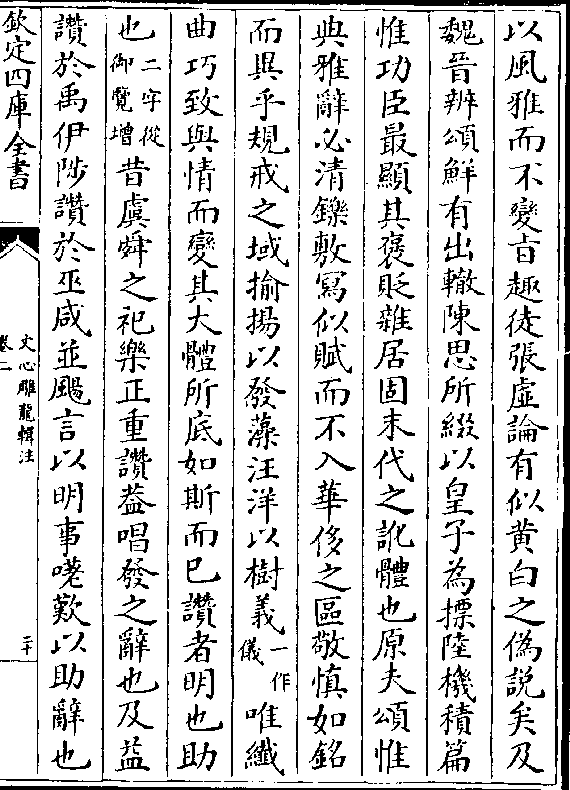 以風雅而不變㫖趣徒張虛論有似黄白之偽說矣及
魏晉辨頌鮮有出轍陳思所綴以皇子為摽陸機積篇
惟功臣最顯其褒貶雜居固末代之訛體也原夫頌惟
典雅辭必清鑠敷寫似賦而不入華侈之區敬慎如銘
而異乎規戒之域揄揚以發藻汪洋以樹義一作儀唯纖
曲巧致與情而變其大體所底如斯而已讚者明也助
也二字從御覽增昔虞舜之祀樂正重讚葢唱發之辭也及益
讚於禹伊陟讚於巫咸並颺言以明事嗟歎以助辭也
欽定四庫全書
文心雕龍輯注
卷二
二十